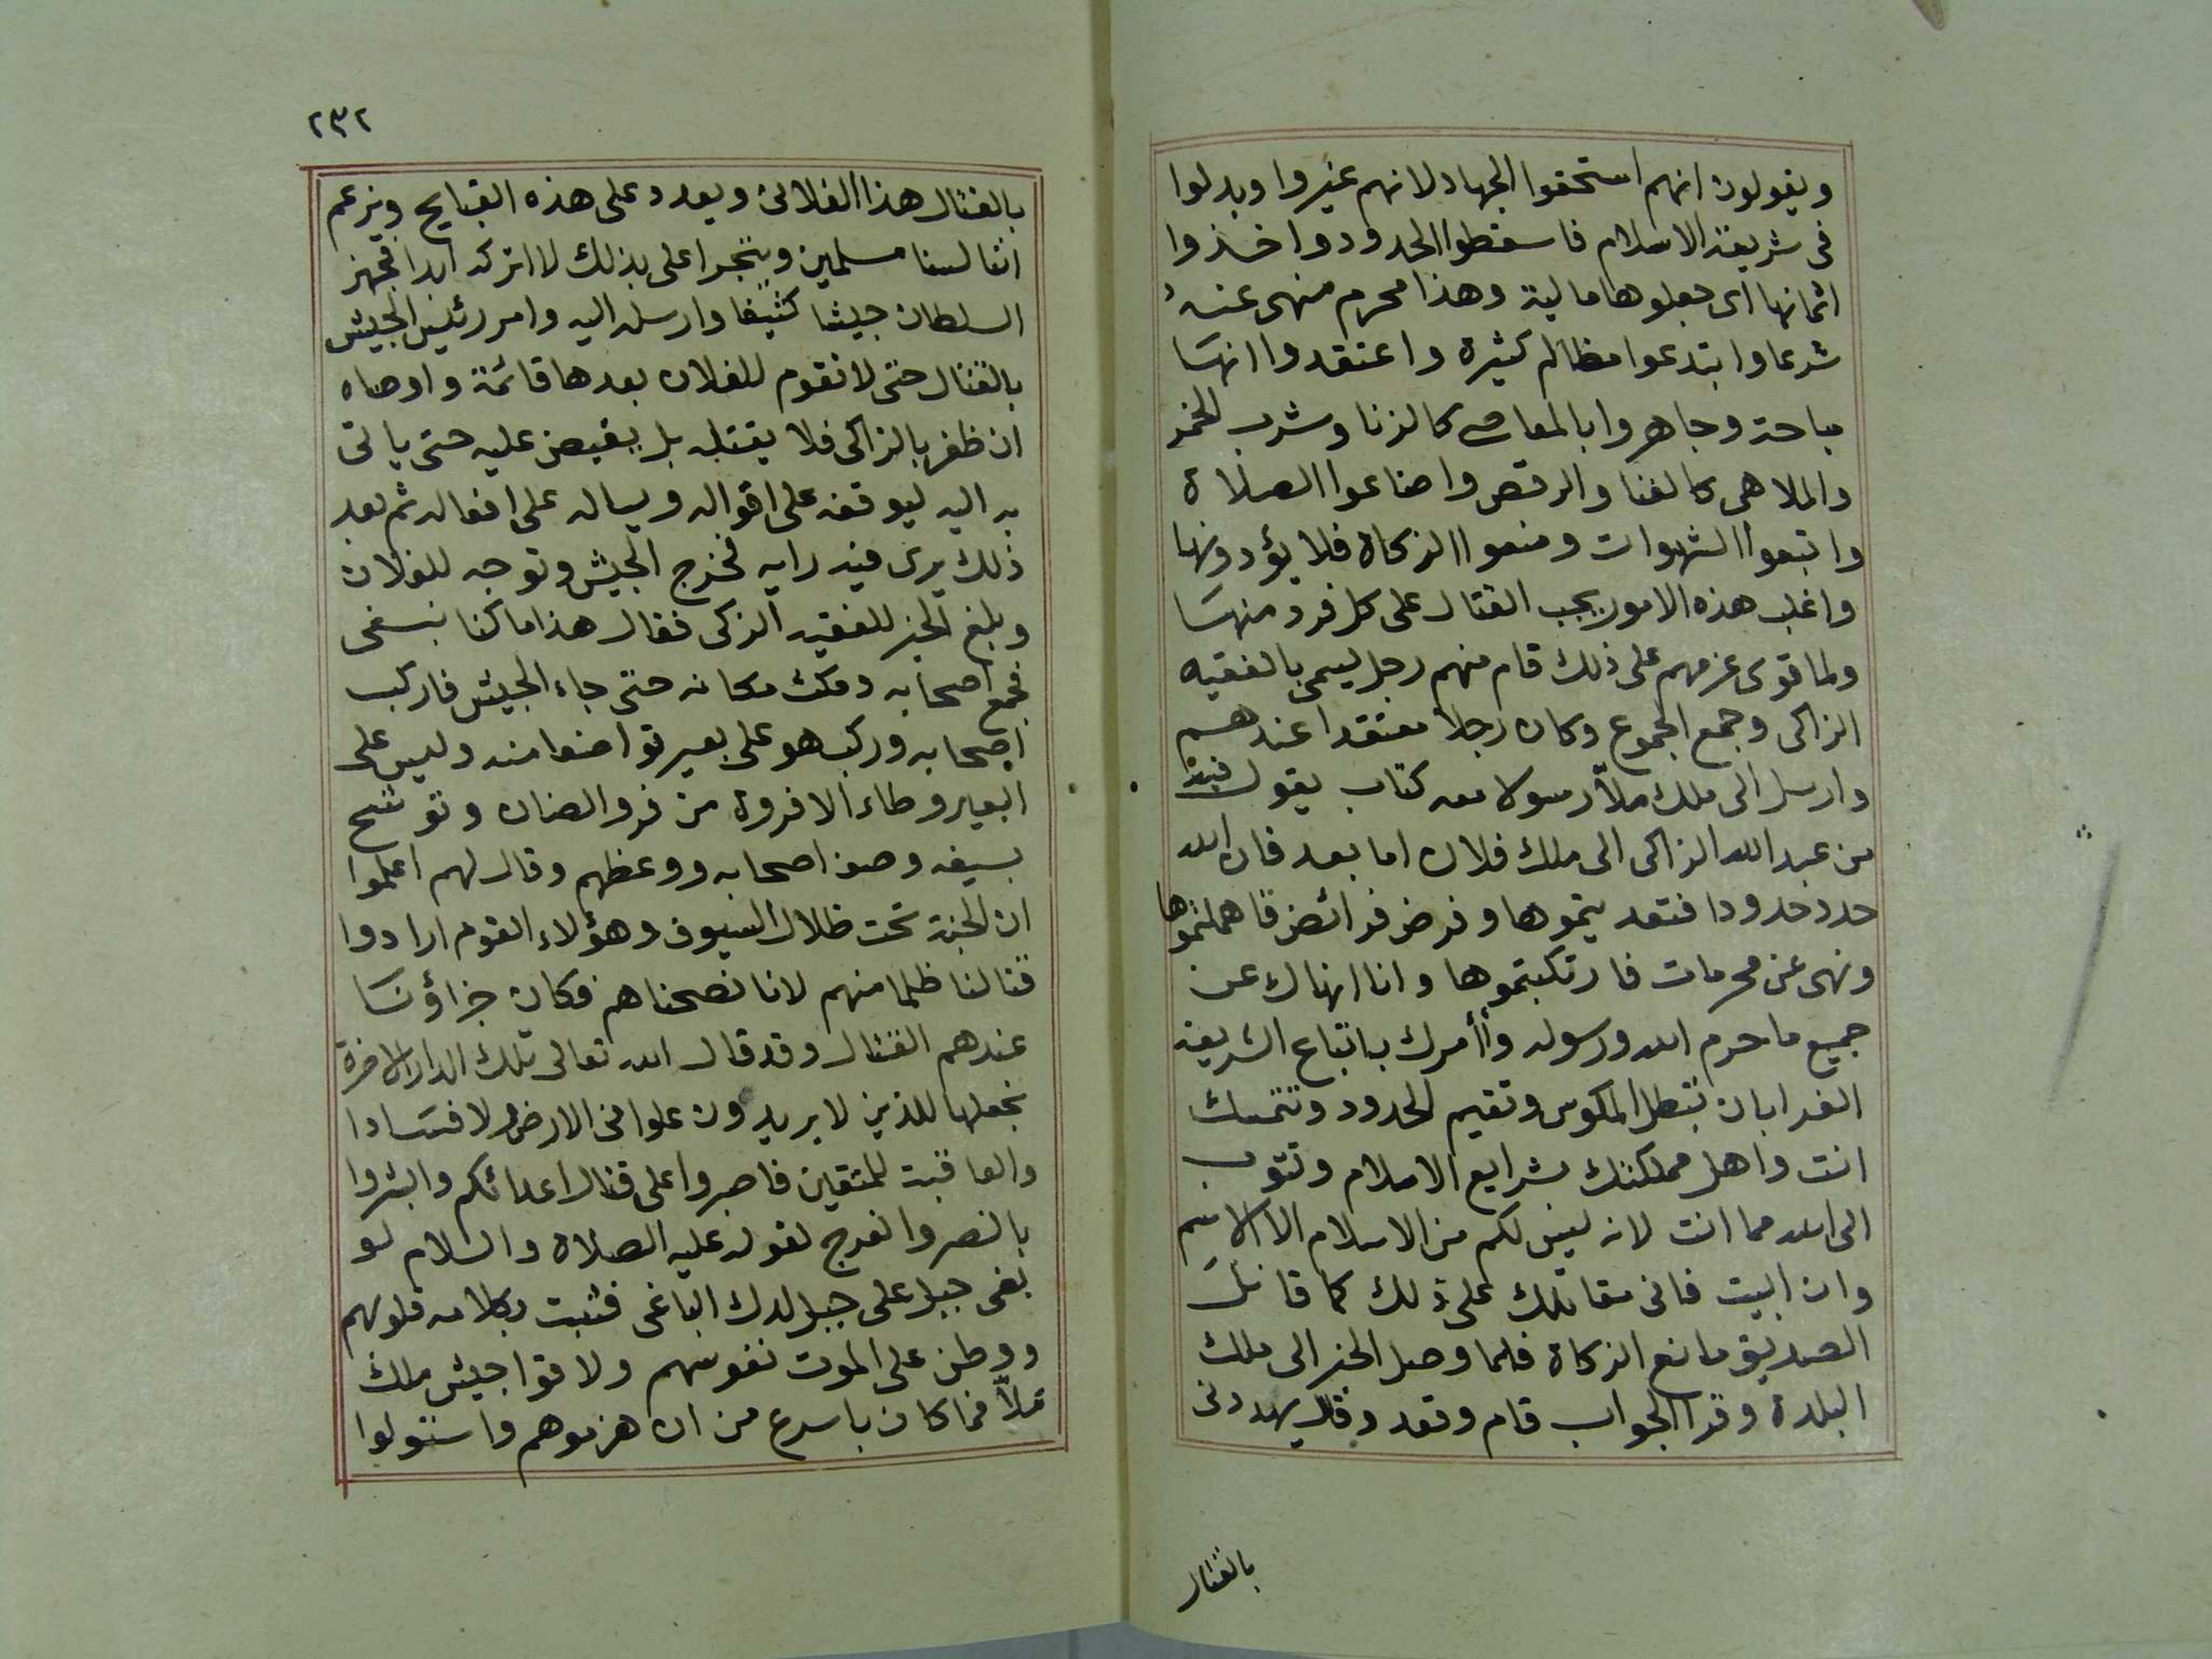 ويقولون انهم استحقوا الجهاد لانهم غيروا وبدلوا
فى شريعة الاسلام فاسقطوا الحدود واخذوا
اثمانها اى جعلوها مالية وهذا محرم منهى عنه
شرعا وابتدعوا مظالم كثيرة واعتقدوا انها
مباحة وجاهروا بالمعاصى كالزنا وشرب الخمر
والملاهى كالغنا والرقص واضاعوا الصلاة
واتبعوا الشهوات ومنعوا الزكاة فلا يؤدونها
واغلب هذه الامور يجب القتال على كل فرد منها
ولما قوى عزمهم على ذلك قام منهم رجل يسمى بالفقيه
الزاكى وجمع الجموع وكان رجلا معتقدا عندهم
وارسل الى ملك ملّا رسولا معه كتاب يقول فيه
من عبد الله الزاكى الى ملك فلان اما بعد فان الله
حدد حدودا فتعديتموها وفرض فرائض فاهملتموها
ونهى عن محرمات فارتكبتموها وانا انهاك عن
جميع ما حرم الله ورسوله وأأمرك باتباع الشريعة
الغرا بان تبطل المكوس وتقيم الحدود وتتمسك
انت واهل مملكتك بشرايع الاسلام وتتوب
الى الله مما انت لانه ليس لكم من الاسلام الا الاسم
وان ابيت فانى مقاتلك على ذلك كما قاتل
الصديق مانع الزكاة فلما وصل الخبر الى ملك
البلدة وقرا الجواب قام وقعد وقال يهددنى
بالقتال
٢٣٢
بالقتال هذا الفلاتى ويعدد على هذه القبايح ويزعم
اننا لسنا مسلمين ويتجرا على بذلك لا اتركه ابدا فجهز
السلطان جيشا كثيفا وارسله اليه وامر رئيس الجيش
بالقتال حتى لا تقوم للفلان بعدها قائمة واوصاه
ان ظفر بالزاكى فلا يقتله بل يقبض عليه حتى ياتى
به اليه ليوقفه على اقواله ويساله على افعاله ثم بعد
ذلك يرى فيه رايه فخرج الجيش وتوجه للفلان
وبلغ الخبر للفقيه الزكى فقال هذا ما كنا نبغى
فجمع اصحابه ومكث مكانه حتى جاء الجيش فاركب
اصحابه وركب هو على بعير تواضعا منه وليس على
البعير وطاء الا فروة من فرو الضان وتوشح
بسيفه وصف اصحابه ووعظهم وقال لهم اعلموا
ان الجنة تحت ظلال السيوف وهؤلاء القوم ارادوا
قتالنا ظلما منهم لانا نصحناهم فكان جزاؤنا
عندهم القتال وقد قال الله تعالى تلك الدار الاخرة
نجعلها للذين لا يريدون علوا فى الارض ولا فسادا
والعاقبت للمتقين فاصبروا على قتال اعدائكم وابشروا
بالنصر والفرج لقوله عليه الصلاة والسلام لو
بغى جبل على جبل لدك الباغى فثبت بكلامه قلوبهم
ووطن على الموت نفوسهم ولاقوا جيش ملك
ملّا فما كان باسرع من ان هزموهم واستولوا